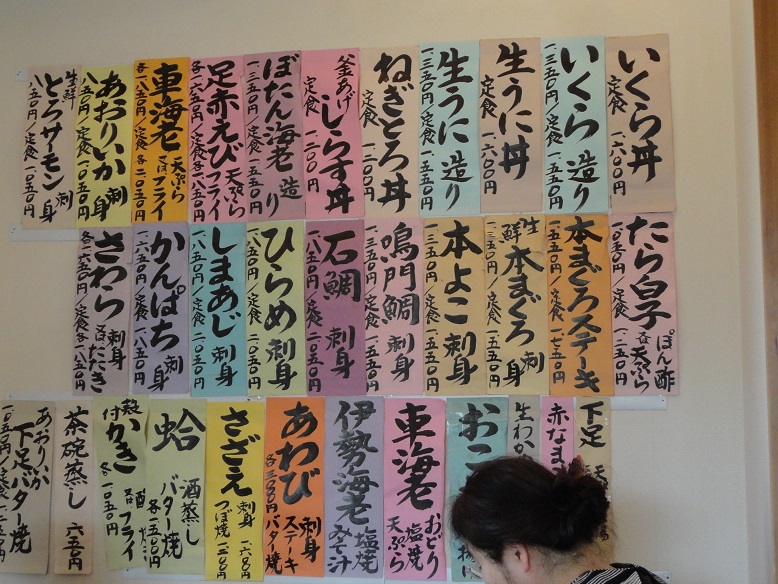 いくら丼
定食 一六〇〇円
いくら 造り
一三五〇円/定食 一五五〇円
生うに丼
定食 一六〇〇円
生うに 造り
一三五〇円/定食 一五五〇円
ねぎとろ丼
定食 一二〇〇円
釜あげ しらす丼
定食 一二〇〇円
ぼたん海老 造り
一三五〇円/定食 一五五〇円
足赤えび 天ぷら フライ
各一六五〇円/定食 各一八五〇円
車海老 天ぷら 又は フライ
各一八五〇円/定食 各二〇五〇円
あおりいか 刺身
八五〇円/定食 一〇五〇円
生鮮 とろサーモン 刺身
八五〇円/定食 一〇五〇円
たら白子 ぽん酢 又は 天ぷら
一〇五〇円/定食 一二五〇円
本まぐろステーキ
一五五〇円/定食 一七五〇円
生鮮 本まぐろ 刺身
一三五〇円/定食 一五五〇円
本よこ 刺身
一三五〇円/定食 一五五〇円
鳴門鯛 刺身
一三五〇円/定食 一五五〇円
石鯛 刺身
一八五〇円/定食 二〇五〇円
ひらめ 刺身
一八五〇円/定食 二〇五〇円
しまあじ 刺身
一八五〇円/定食 二〇五〇円
かんぱち 刺身
一六五〇円/定食 一八五〇円
さわら 刺身 又は たたき
各一六五〇円/定食 各一八五〇円
下足 天
赤なま
生わか
おこ
車海老 おどり 塩焼 天ぷら
伊勢海老 塩焼 みそ汁
あわび 刺身 ステーキ バター焼
各三〇〇〇円
さざえ 刺身 つぼ焼
殻付 かき 酒 又は フライ
各一〇五〇円
蛤 酒蒸し バター焼
各一二五〇円
茶碗蒸し 六五〇円
あおりいか 下足バター焼
一〇五〇円/定食 一二五〇円